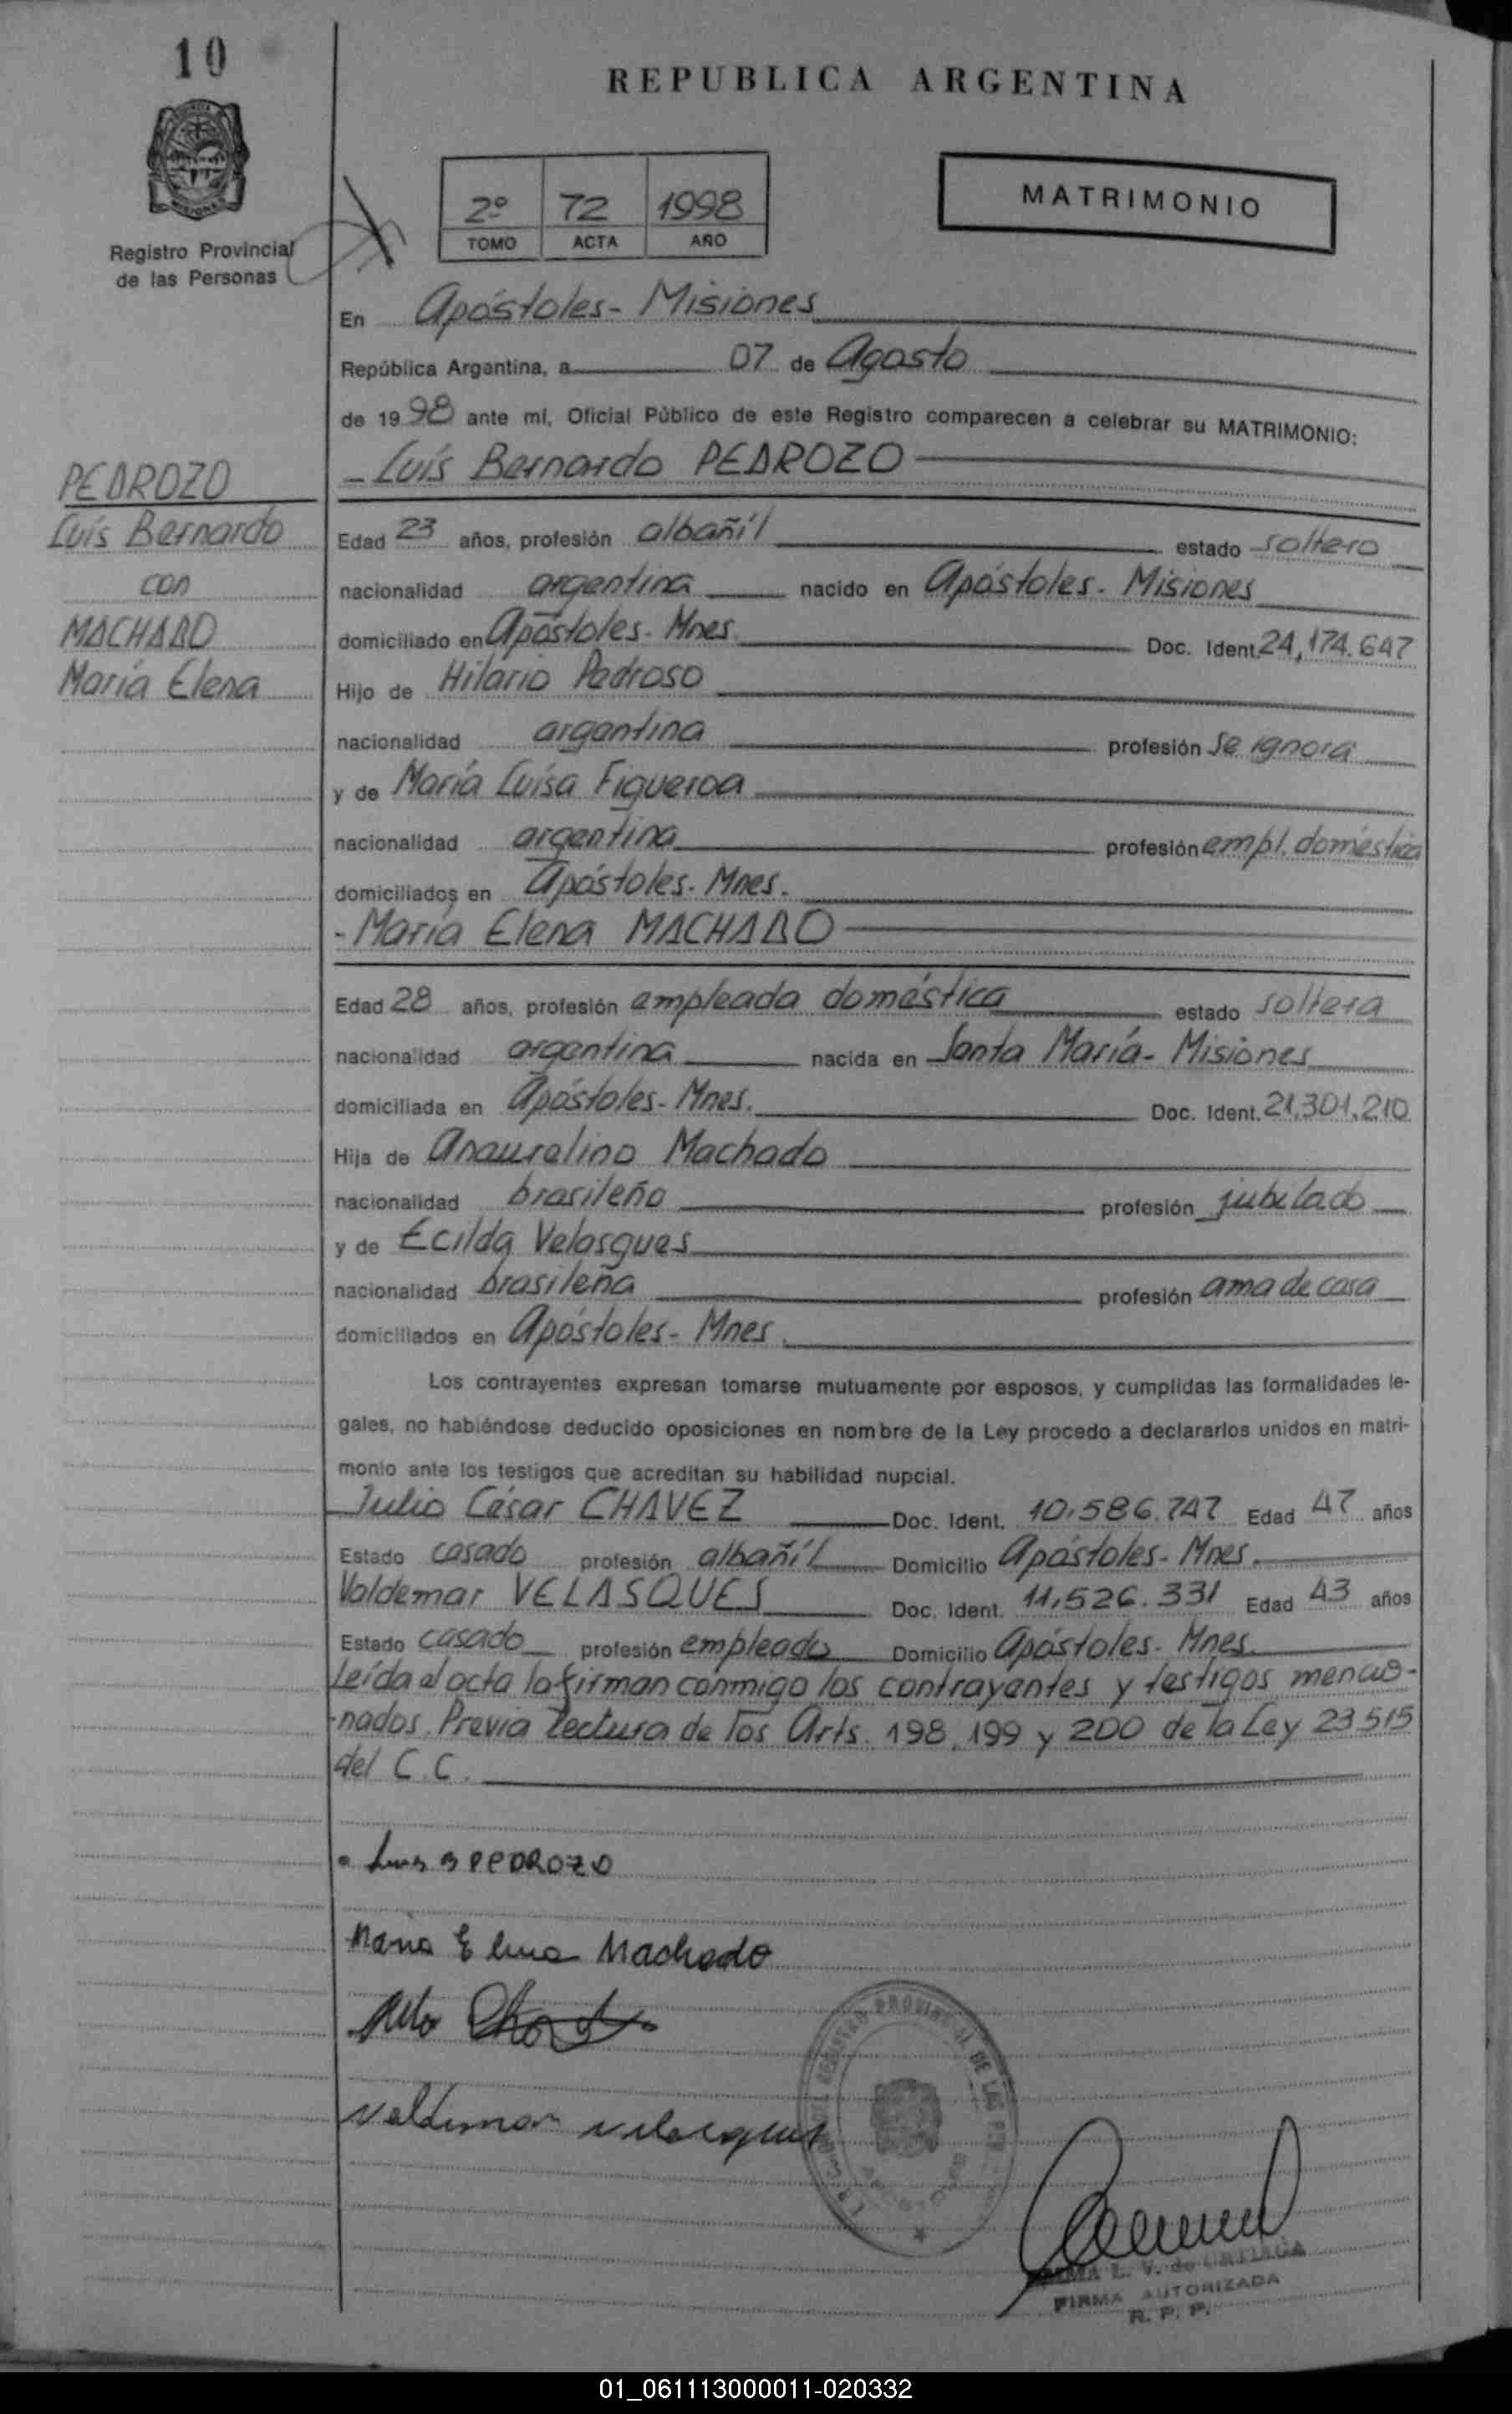 10
REPUBLICA ARGENTINA
MATRIMONIO
2º 72 1998
TOMO ACTA AÑO
Registro Provincial
de las Personas
En Apóstoles- Misiones
República Argentina, a 07 de Agosto
de 1998 ante mí, Oficial Público de este Registro comparecen a celebrar su MATRIMONIO:
- Luís Bernardo PEDROZO
PEDROZO
Luís Bernardo
con
MACHADO
María Elena
Edad 23 años, profesión albañil estado soltero
nacionalidad argentina nacido en Apóstoles- Misiones
domiciliado en Apóstoles- Mnes. Doc. Ident. 24,174.647
Hijo de Hilario Pedroso
nacionalidad argentina profesión se ignora
y de María Luísa Figueroa
nacionalidad argentina profesión empl. doméstica
domiciliados en Apóstoles- Mnes.
- María Elena MACHADO
Edad 28 años, profesión empleada doméstica estado soltera
nacionalidad argentina nacida en Santa María- Misiones
domiciliada en Apóstoles- Mnes. Doc. Ident. 21.301.210
Hija de Anaurelino Machado
nacionalidad brasileño profesión jubilado
y de Ecilda Velasques
nacionalidad brasileña profesión ama de casa
domiciliados en Apóstoles- Mnes.
Los contrayentes expresan tomarse mutuamente por esposos, y cumplidas las formalidades le-
gales, no habiéndose deducido oposiciones en nombre de la Ley procedo a declararlos unidos en matri-
monio ante los testigos que acreditan su habilidad nupcial.
Julio César CHAVEZ Doc. Ident. 10.586.747 Edad 47 años
Estado casado profesión albañil Domicilio Apóstoles- Mnes.
Valdemar VELASQUES Doc. Ident. 11,526.331 Edad 43 años
Estado casado profesión empleado Domicilio Apóstoles- Mnes.
Leída el acta la firman conmigo los contrayentes y testigos mencio-
-nados. Previa Lectura de los Arts. 198, 199 y 200 de la Ley 23.515
del C.C.
Luis B PEDROZO
Maria Elena Machado
Valdemar Velasques
REGISTRO PROVINCIAL DE LAS
L. V. de URTIAGA
FIRMA AUTORIZADA
R. P. P.
01_061113000011-020332